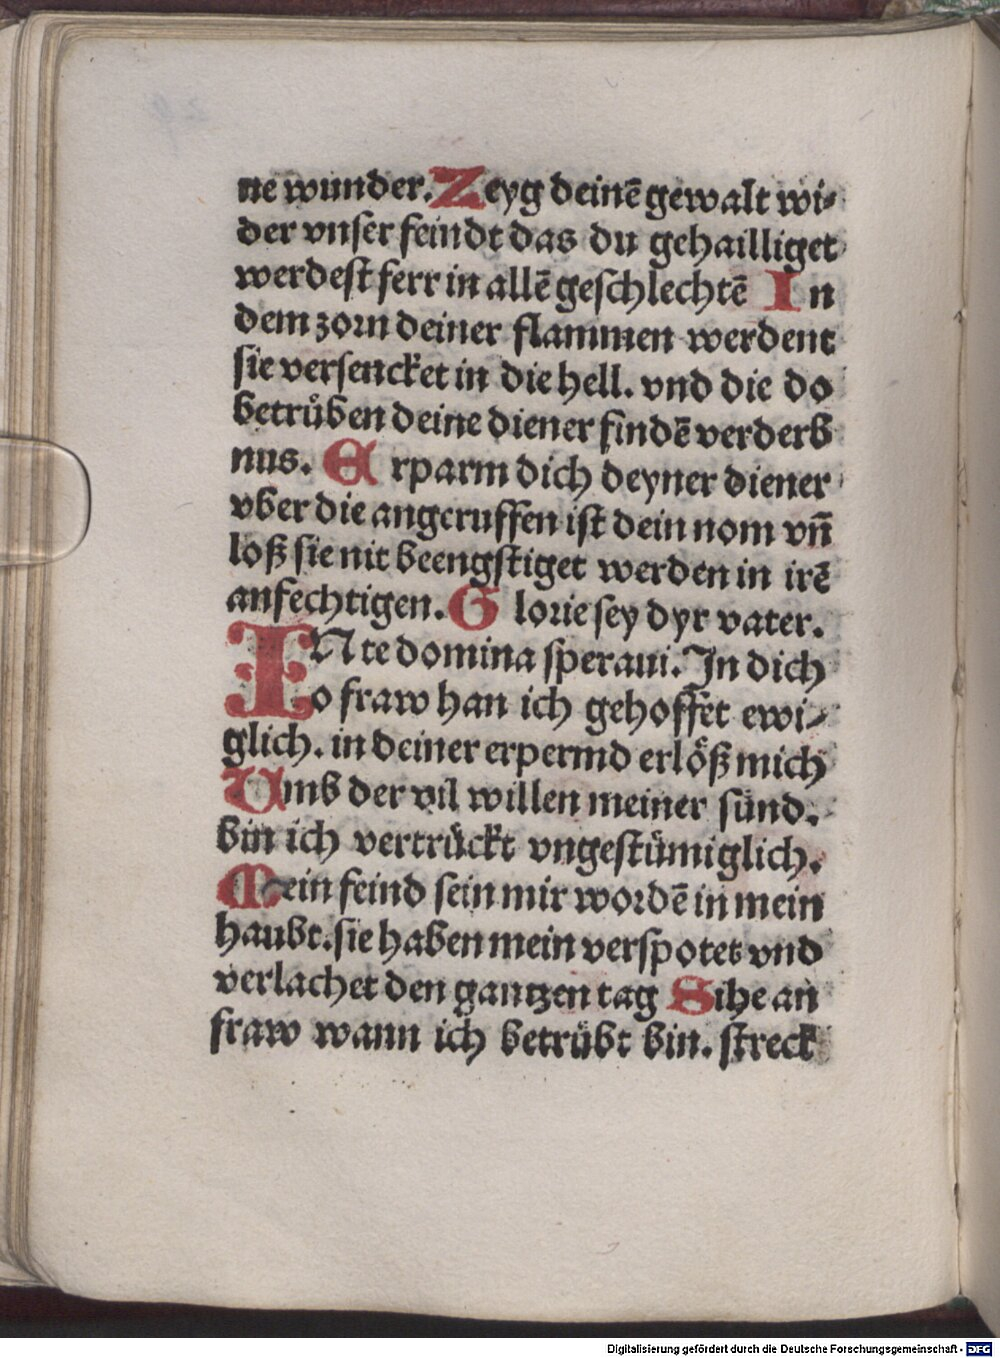 ne wunder. Zeyg deinē gewalt wi-
der vnser feindt das du gehailliget
werdest ferr in allē geschlechtē In
dem zorn deiner flammen werdent
sie versencket in die hell. vnd die do
betrůben deine diener findē verderb
nus. Erparm dich deyner diener
vber die angeruffen ist dein nom vn̄
loß sie nit beengstiget werden in irē
anfechtigen. Glorie sey dyr vater.
INte domina speraui. In dich
o fraw han ich gehoffet ewi-
glich. in deiner erpermd erlöß mich
Umb der vil willen meiner sünd.
bin ich vertrückt vngestümiglich.
Mein feind sein mir wordē in mein
haubt. sie haben mein verspotet vnd
verlachet den gantzen tag Sihe an
fraw wann ich betrübt bin. streck
Digitalisierung gefördert durch die Deutsche Forschungsgemeinschaft - DFG